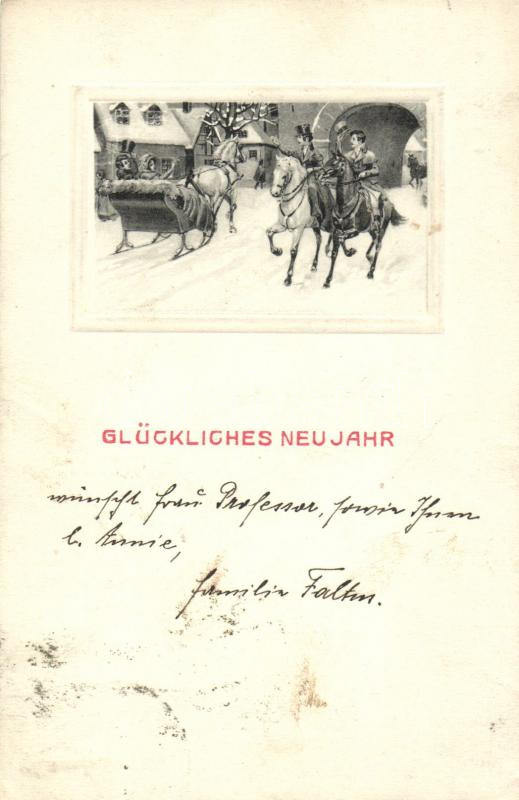 GLÜCKLICHES NEUJAHR
wünscht Frau Professor, sowie Ihnen
l. Annie,
Familie Faltin.